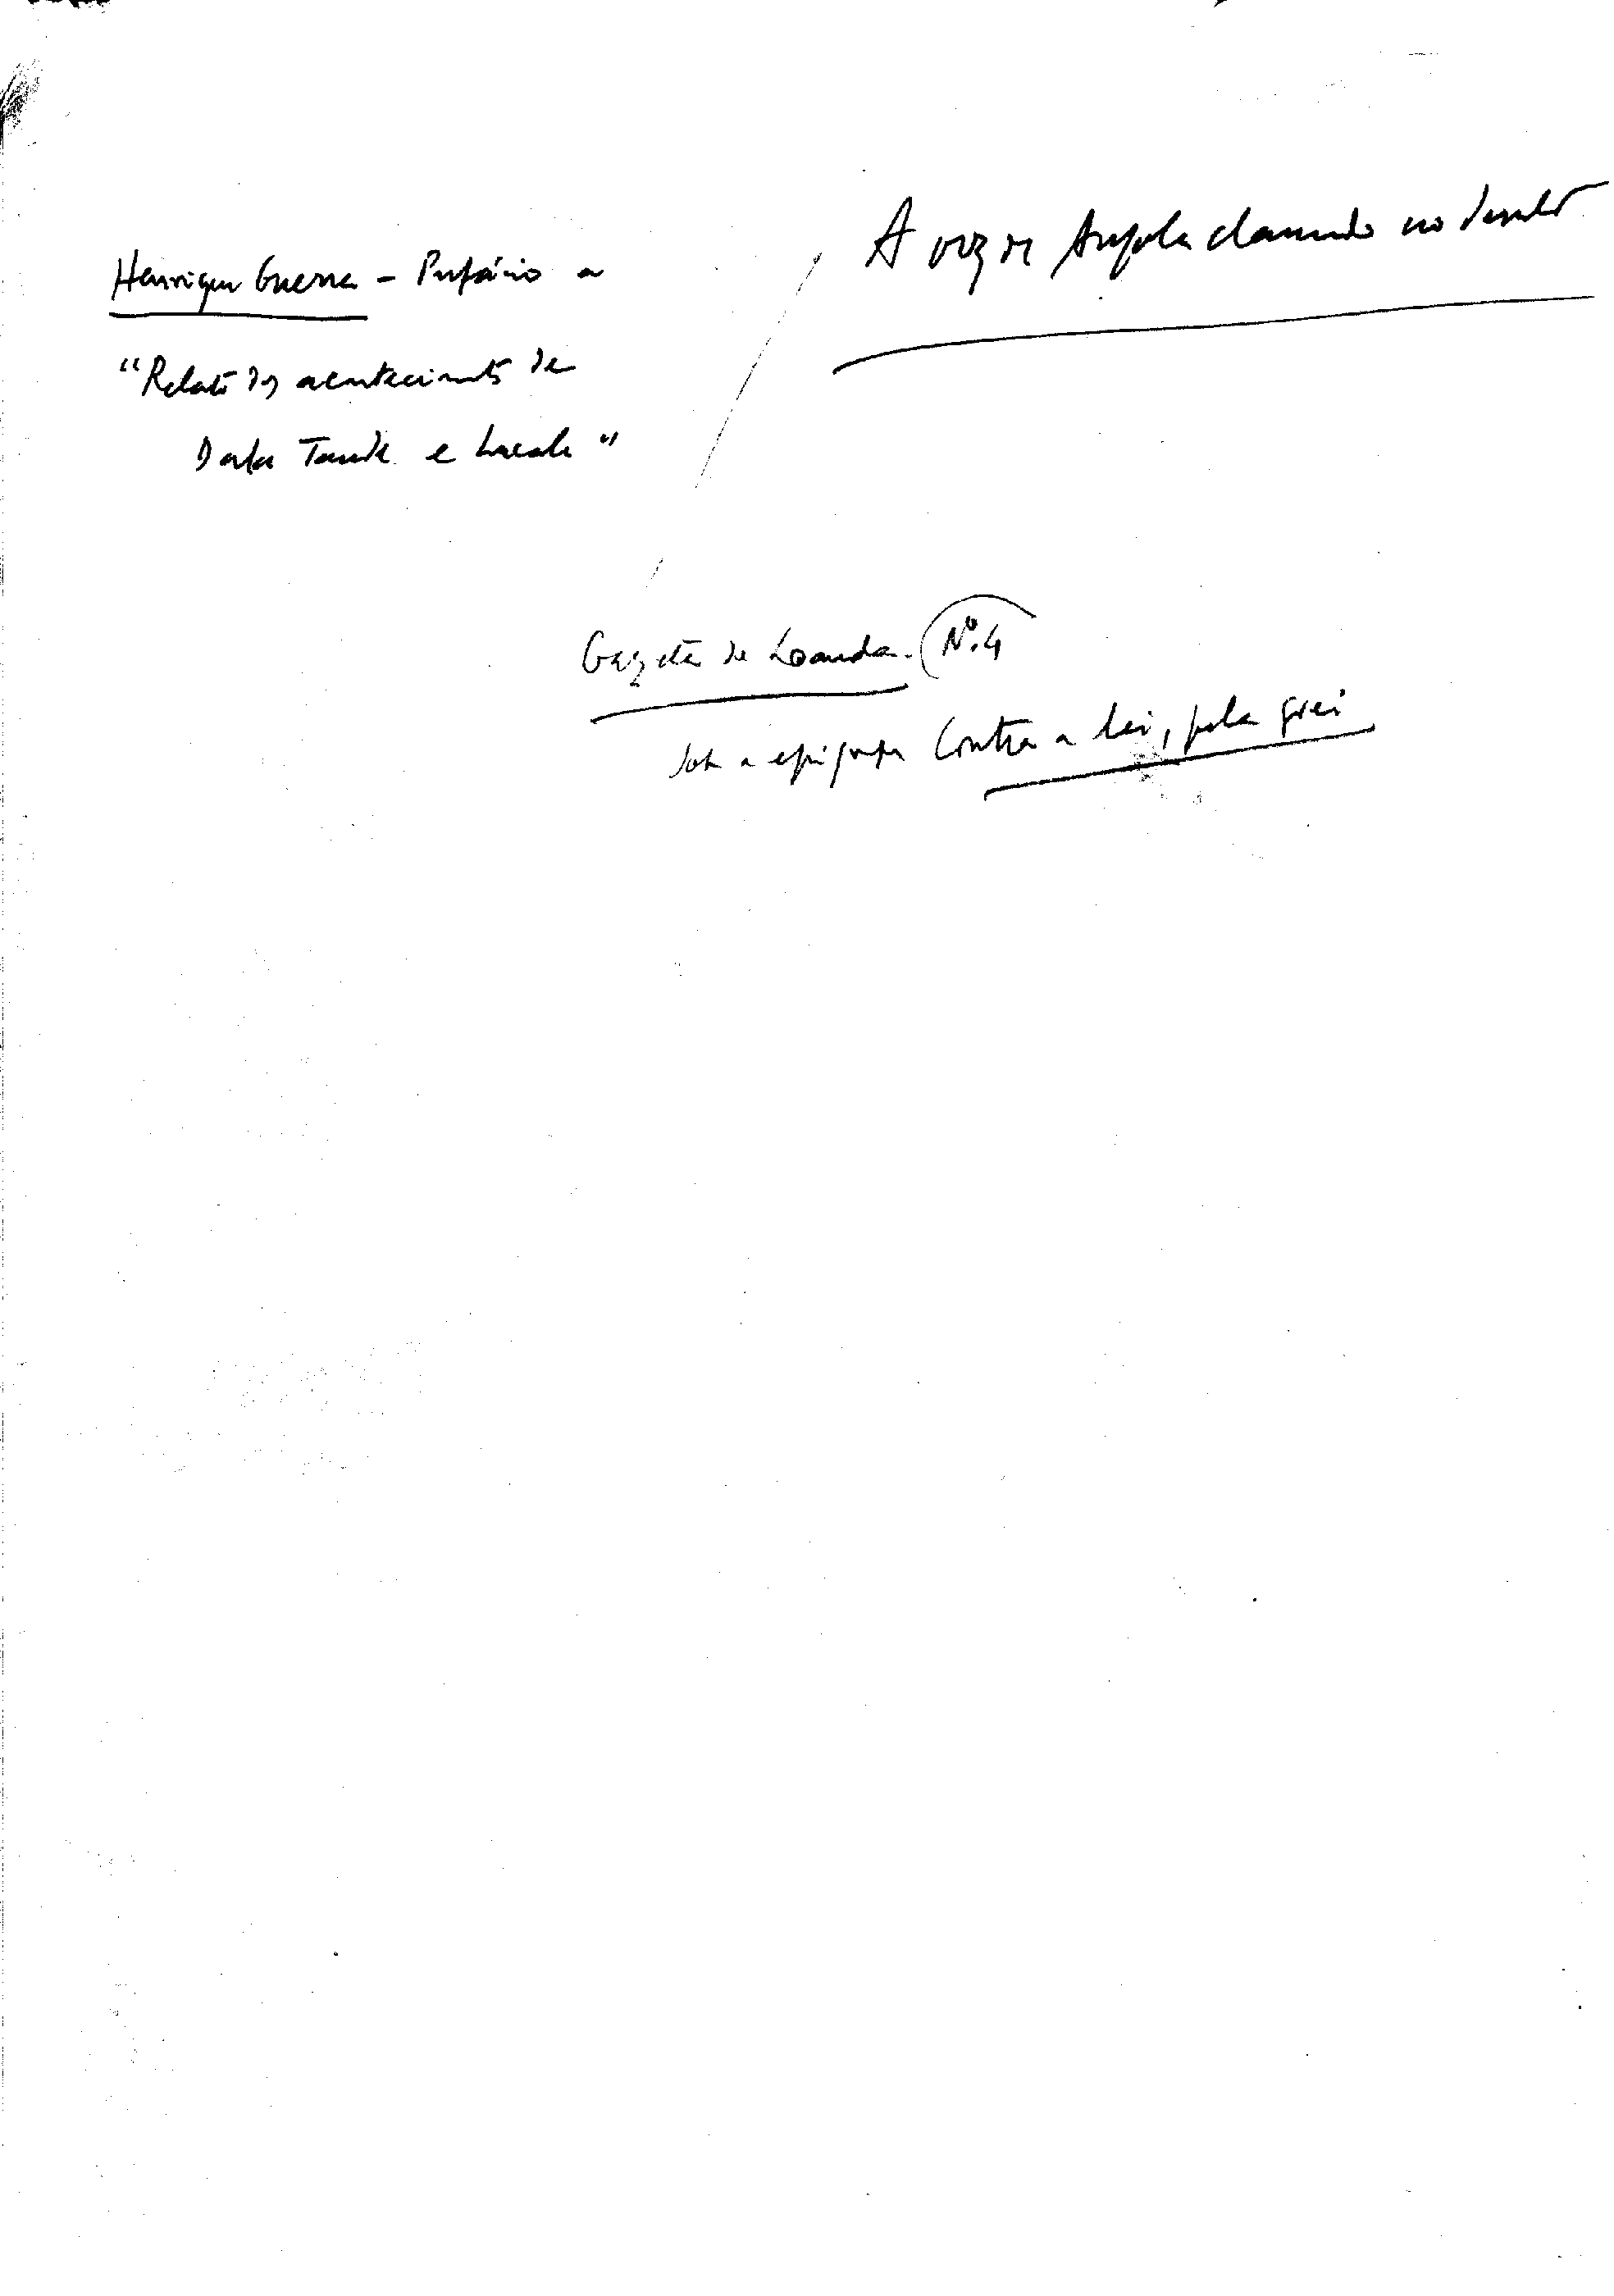 Henrique Guerra - Prefácio a
"Relato dos acontecimentos de
Dala Tando e Lucala"
A voz de Angola clamando no deserto
Gazeta de Loanda. Nº. 4
sob a epígrafe Contra a lei, pela grei